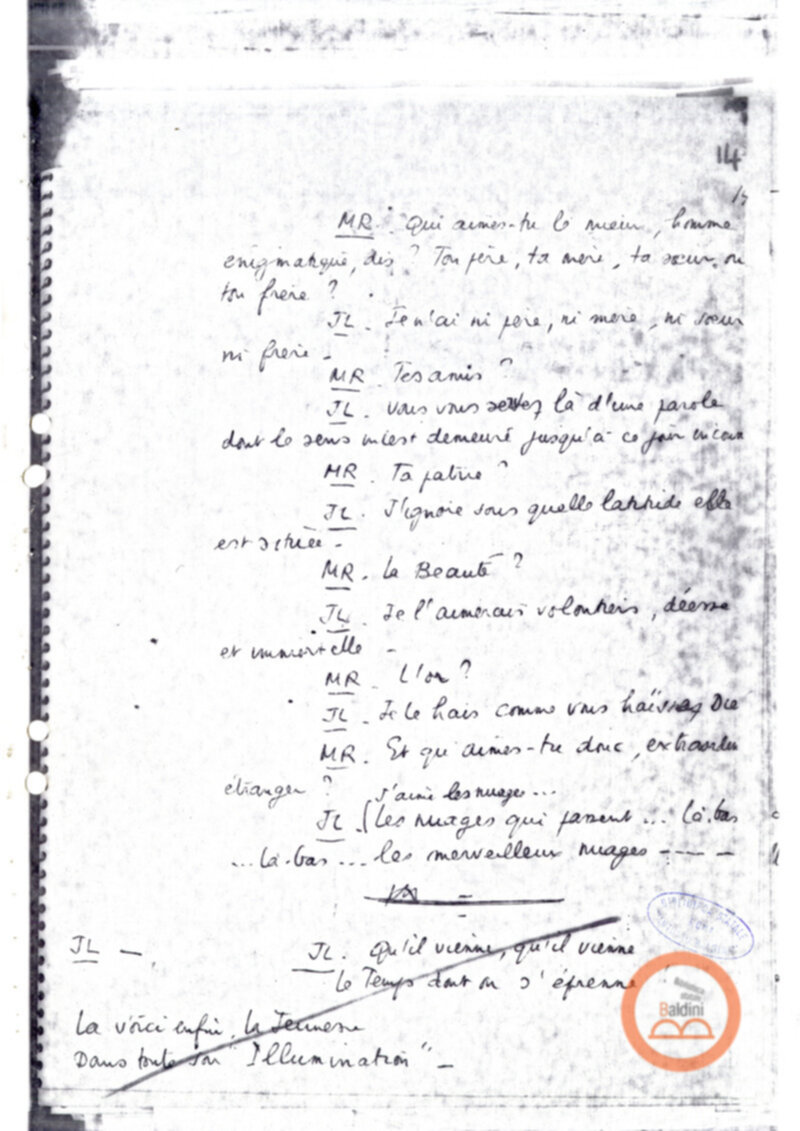 14
MR. Qui aimes-tu le mieux, homme
énigmatique, dis ? Ton père, ta mère, ta sœur, ou
ton frère ?
JL. Je n'ai ni père, ni mère, ni sœur
ni frère -
MR. Tes amis ?
JL. Vous vous servez là d'une parole
dont le sens m'est demeuré jusqu'à ce jour
MR. Ta patrie ?
JL. J'ignore sous quelle latitude elle
est située -
MR. La Beauté ?
JL. Je l'aimerais volontiers, déesse
et immortelle -
MR. L'or ?
JL. Je le hais comme vous haïssez Die
MR. Et qu'aimes-tu donc,
étranger ? J'aime les nuages...
JL. Les nuages qui passent ... là-bas
...là-bas ... les merveilleux nuages ----
JL - JL. Qu'il vienne, qu'il vienne
le Temps dont on s'éprenne
La voici enfin, la Jeunesse
Dans toute son "Illumination" -
Biblioteca
statale
Baldini